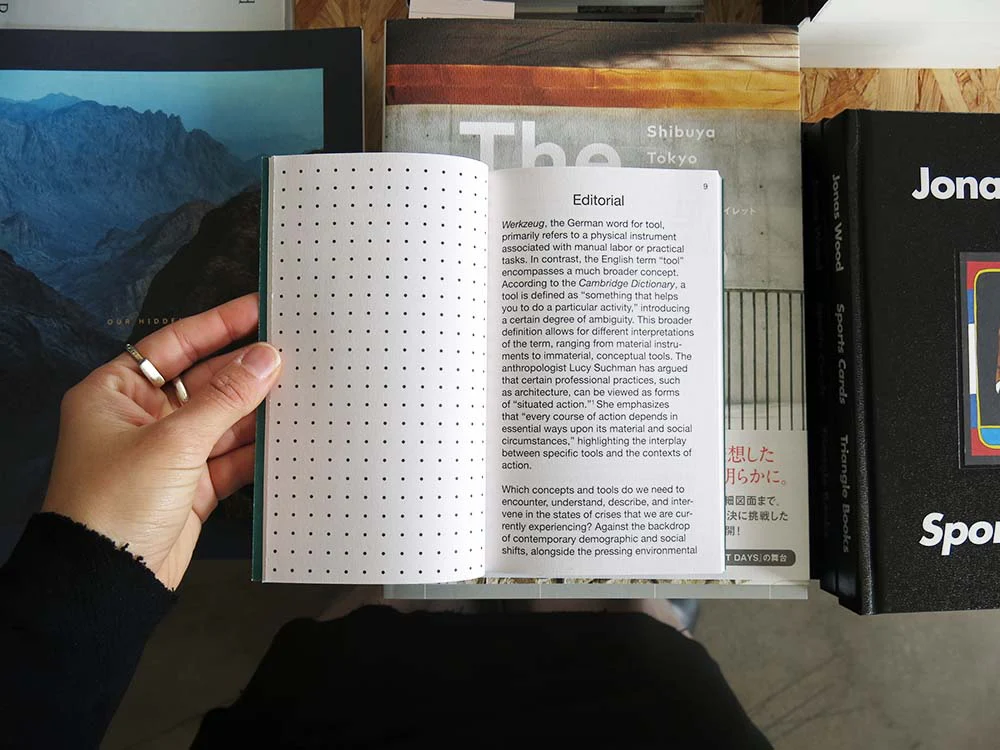 OUR HIDDEN
The
Shibuya
Tokyo
イレット
想した
明らかに。
細図面まで。
決に挑戦した
開!
T DAYS』の舞台
9
Editorial
Werkzeug, the German word for tool,
primarily refers to a physical instrument
associated with manual labor or practical
tasks. In contrast, the English term “tool”
encompasses a much broader concept.
According to the Cambridge Dictionary, a
tool is defined as “something that helps
you to do a particular activity,” introducing
a certain degree of ambiguity. This broader
definition allows for different interpretations
of the term, ranging from material instru-
ments to immaterial, conceptual tools. The
anthropologist Lucy Suchman has argued
that certain professional practices, such
as architecture, can be viewed as forms
of “situated action.”¹ She emphasizes
that “every course of action depends in
essential ways upon its material and social
circumstances,” highlighting the interplay
between specific tools and the contexts of
action.
Which concepts and tools do we need to
encounter, understand, describe, and inter-
vene in the states of crises that we are cur-
rently experiencing? Against the backdrop
of contemporary demographic and social
shifts, alongside the pressing environmental
Jonas Wood Sports Cards Triangle Books
Jona
Spor